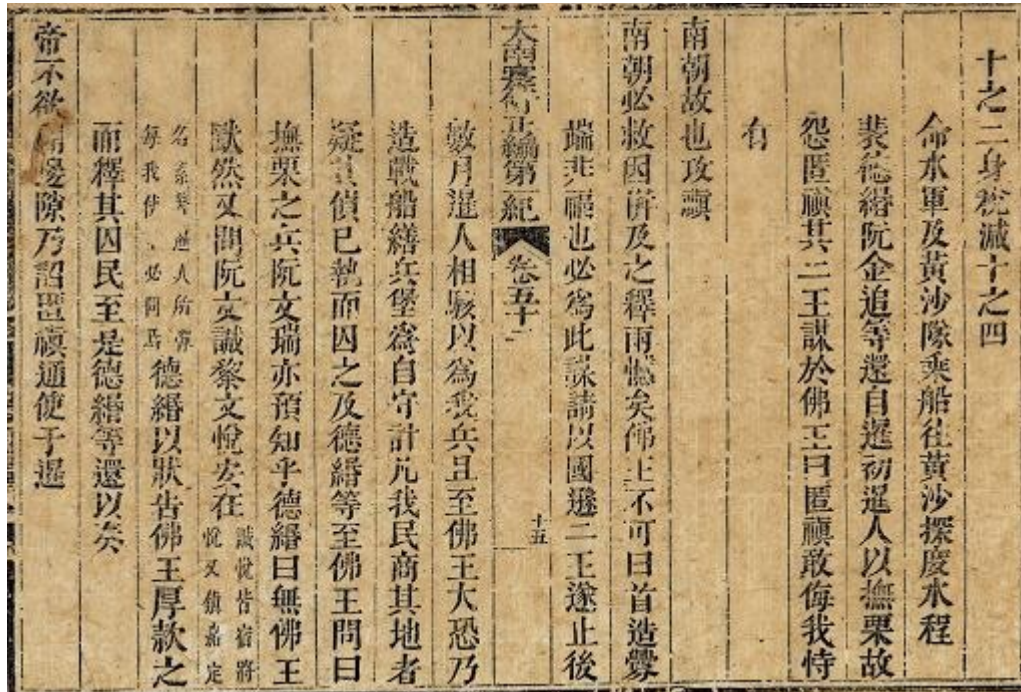 十之二身稅減十之四
命水軍及黃沙隊乘船往黃沙探度水程
裴德縉阮金追等還自暹初暹人以撫栗故
怨匿禛其二王謀於佛王曰匿禛敢侮我恃
有
南朝故也攻禛
南朝必救因併及之釋雨憾矣佛王不可曰首造釁
端非福也必爲此謀請以國遜二王遂止後
大南寔彔正編第一紀 卷五十二 十五
數月暹人相駭以爲我兵且至佛王大恐乃
造戰船繕兵堡爲自守計凡我民商其地者
疑其偵已執而囚之及德縉等至佛王問曰
撫栗之兵阮文瑞亦預知乎德縉曰無佛王
默然又問阮文誠黎文悅安在 誠悅皆宿將悅又鎮嘉定
名素爲暹人所畏每我使必問焉 德縉以狀告佛王厚款之
而釋其囚民至是德縉等還以奏
帝不欲開邊隙乃詔匿禛通使于暹